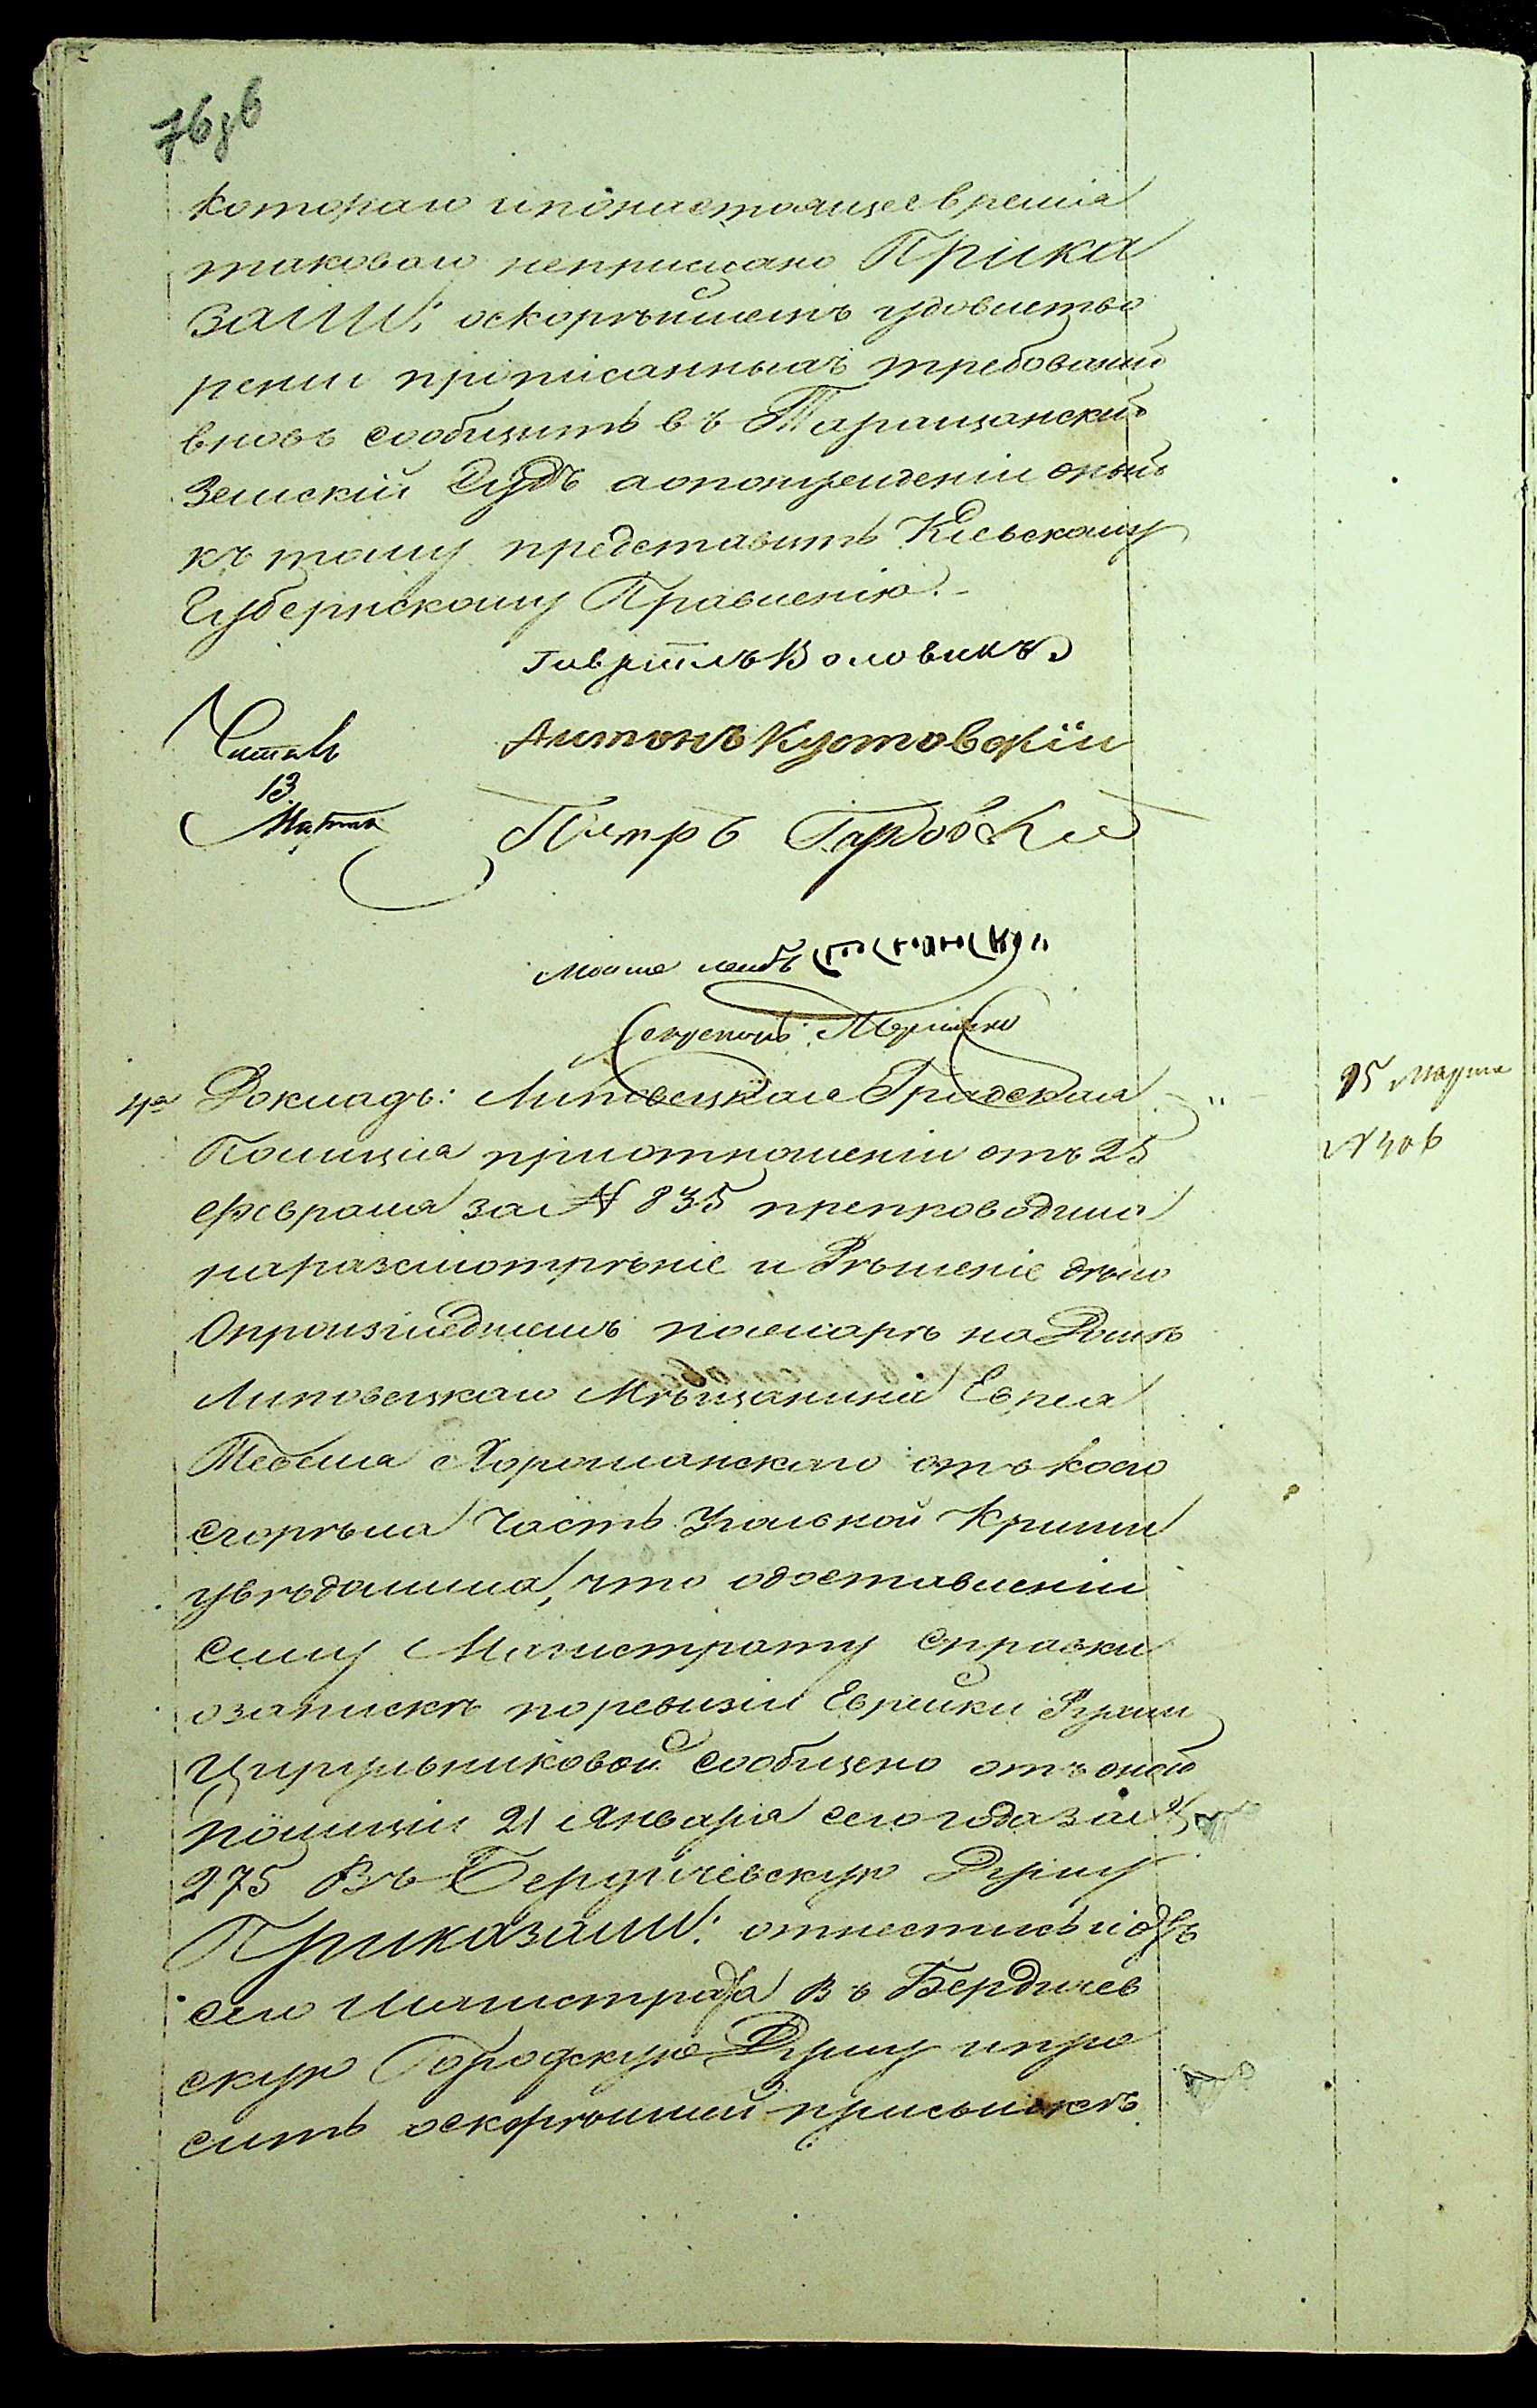 76 об
котораго ипонастоящее время
таковаго неприслано Прика
зали: оскорѣйшемъ удовлетво
рении прописанныхъ требованій
вновь сообщить въ Таращанскій
Земскій Судъ аопонужденіи оный
къ тому представить Кіевскому
Губернскому Правленію.-
Гавріилъ Воловикъ
Читалъ
13
Марта
Антонъ Кустовскій
Петръ Гарбовскій
Мошше лейбъ
Секретарь:
4я Докладъ: Липовецкая Градская
Полиція приотношеніи отъ 25
февраля за № 835 препроводила
наразсмотрѣніе и Рѣшеніе дѣло
Опроизшедшемъ пожарѣ на Домѣ
Липовецкаго Мѣщанина Еврея
Тевеля Хорошанскаго отъ коего
сгорѣла часть Угольной Крыши
увѣдомила, что одоставленіи
сему Магистрату справки
озапискѣ поревизіи Еврейки Рузи
Цирульниковой сообщено отъ оной
полиціи 21 Января сего года за №
275 въ Бердичевскую Думу
Приказали: отнестись изъ
сего Магистрата въ Бердичев
скую Городскую Думу и про
сить оскорѣйшей присылкѣ
15 Марта
№ 406